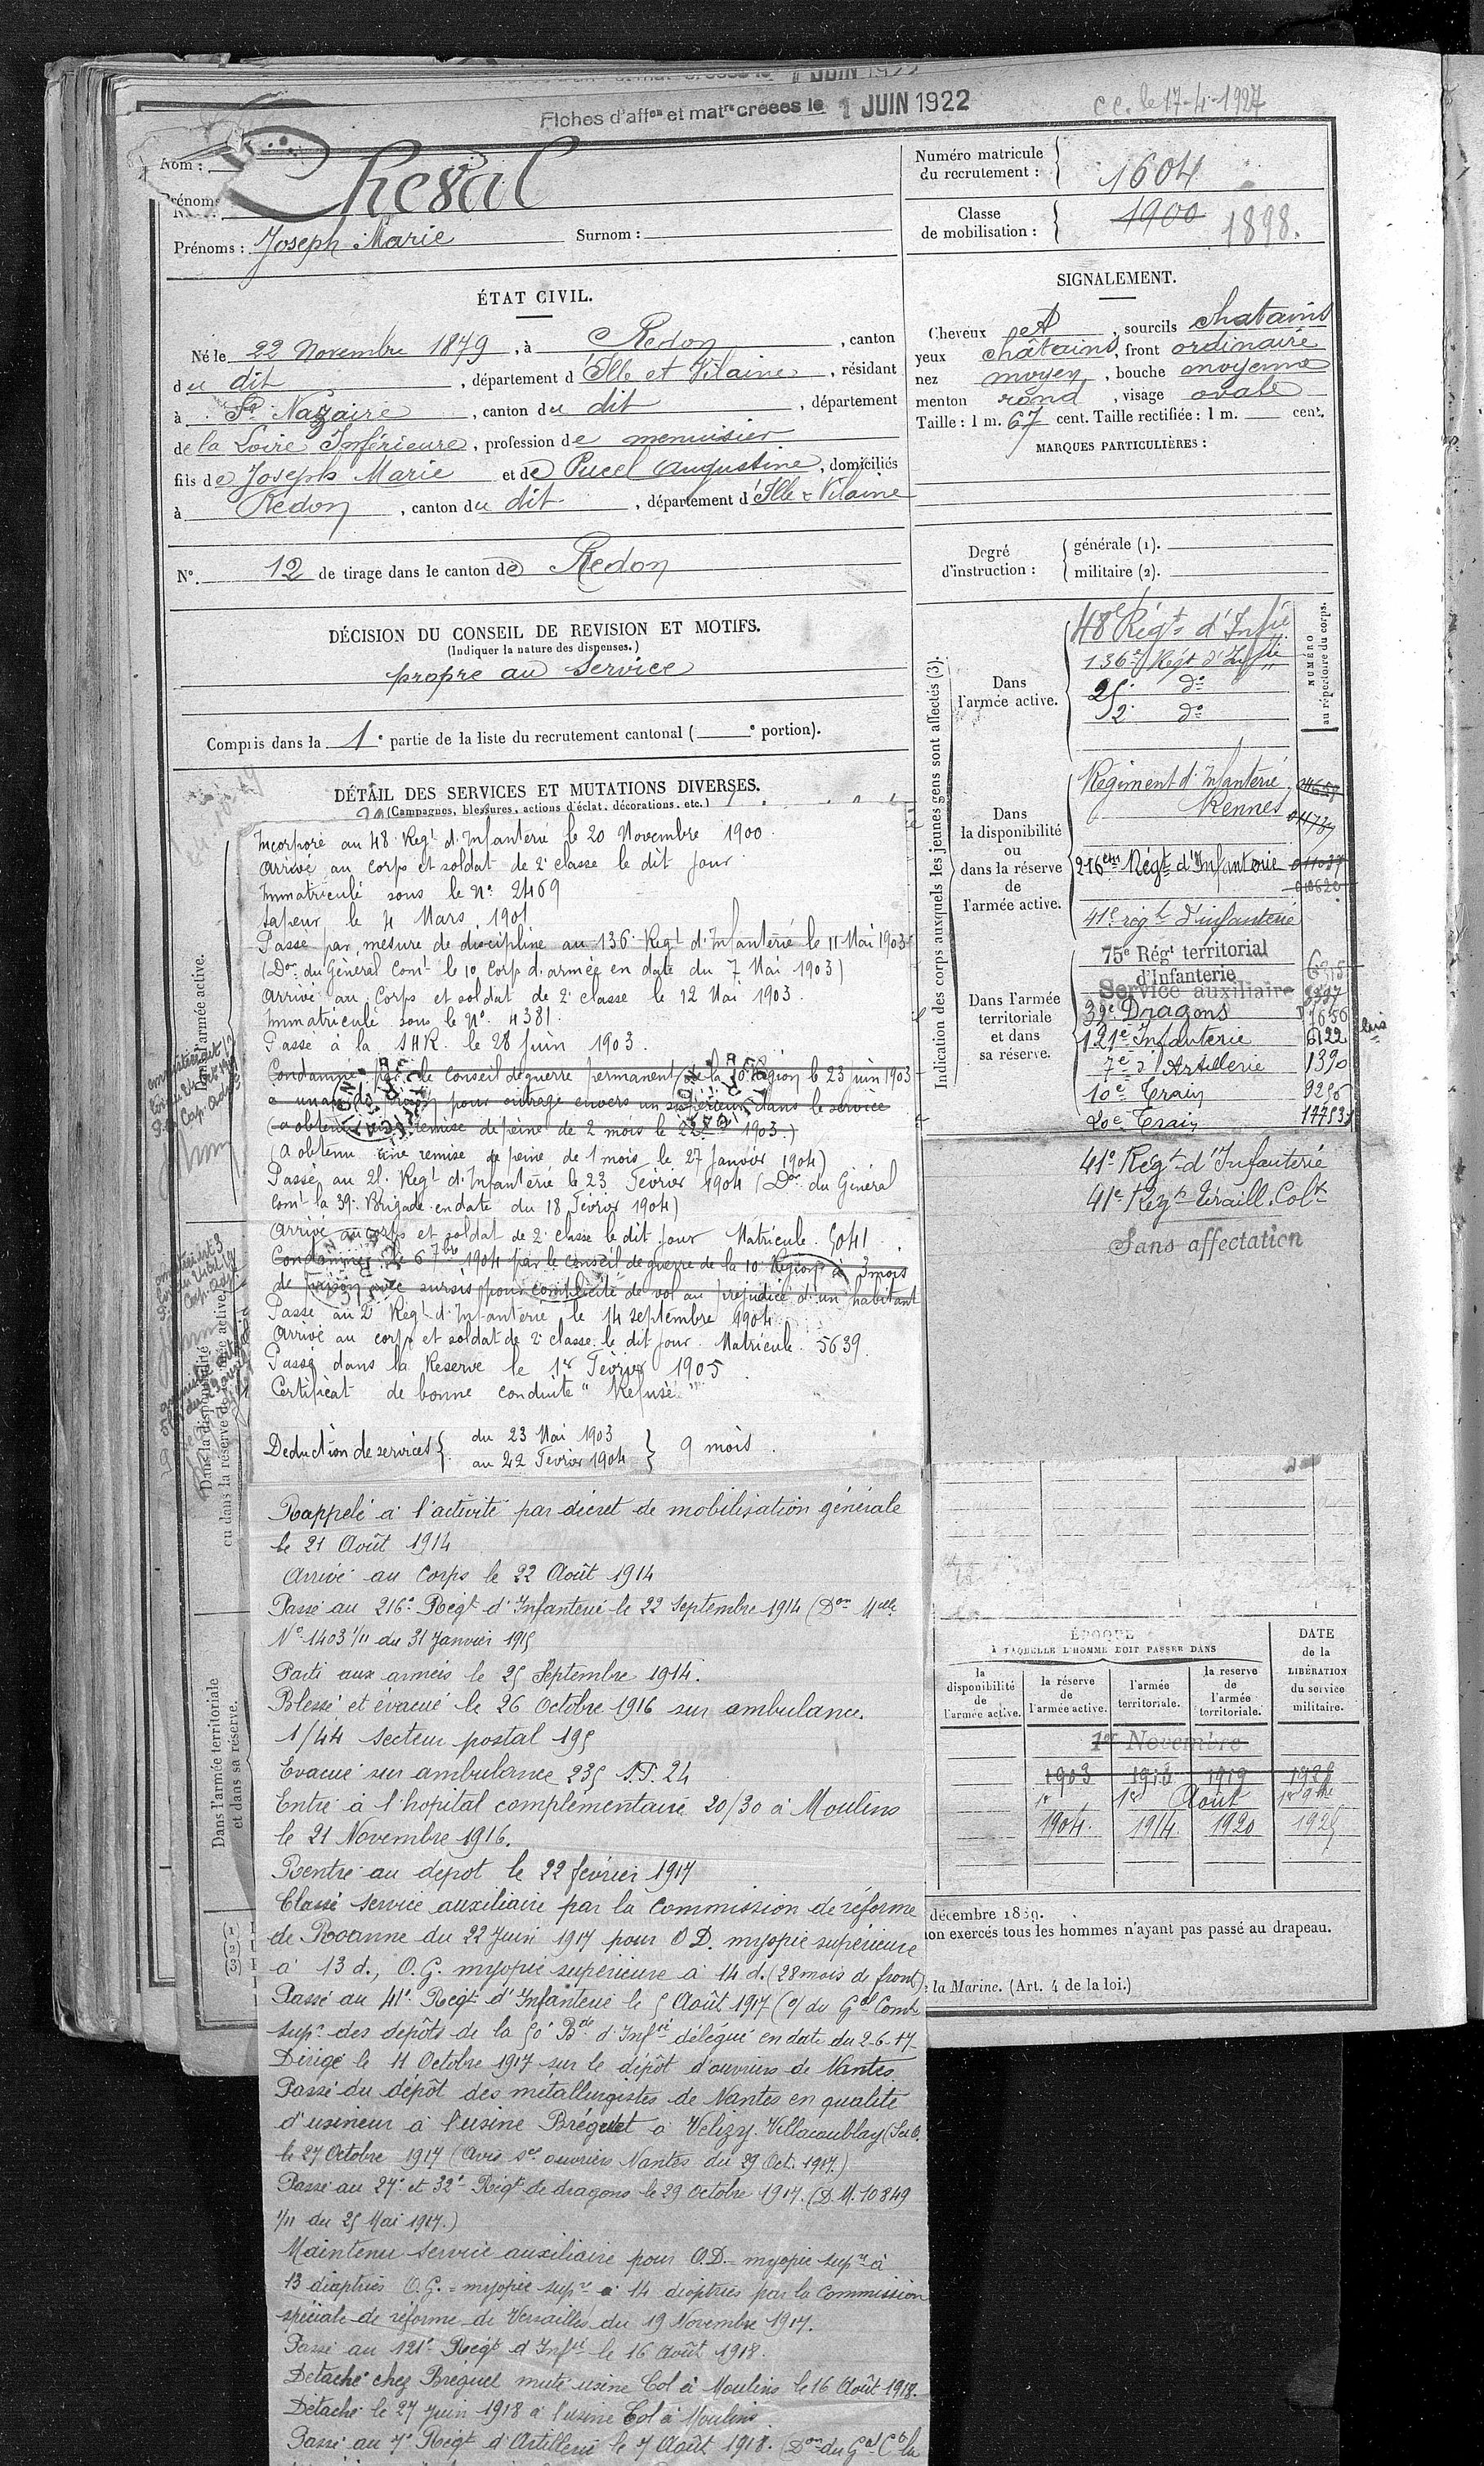 Fiches d'aff.on et mat.re créées le 1 JUIN 1922
c.c. le 17-4-1927
Nom :
Cheval
Prénoms
Prénoms : Joseph Marie Surnom :
Numéro matricule du recrutement : 1604
Classe de mobilisation : 1900 1898.
ÉTAT CIVIL.
Né le 22 Novembre 1879, à Redon, canton
du dit, département d'Ille et Vilaine, résidant
à St Nazaire, canton du dit, département
de la Loire Inférieure, profession de menuisier
fils de Joseph Marie et de Pucel Augustine, domiciliés
à Redon, canton du dit, département d'Ille & Vilaine
N°. 12 de tirage dans le canton de Redon
SIGNALEMENT.
Cheveux et, sourcils chatains
yeux châtains, front ordinaire
nez moyen, bouche moyenne
menton rond, visage ovale
Taille : 1 m. 67 cent. Taille rectifiée : 1 m. cent.
MARQUES PARTICULIÈRES :
Degré d'instruction :
générale (1).
militaire (2).
DÉCISION DU CONSEIL DE REVISION ET MOTIFS.
(Indiquer la nature des dispenses.)
propre au service
Compris dans la 1e partie de la liste du recrutement cantonal ( e portion).
DÉTAIL DES SERVICES ET MUTATIONS DIVERSES.
(Campagnes, blessures, actions d'éclat, décorations, etc.)
Incorporé au 48e Regt d'Infanterie le 20 Novembre 1900.
Arrivé au corps et soldat de 2e classe le dit jour.
Immatriculé sous le N° 2469
Sapeur le 4 Mars 1901
Passé par mesure de discipline au 136e Regt d'Infanterie le 11 Mai 1903
(Don du Général Comt le 10e Corps d'armée en date du 7 Mai 1903)
Arrivé au Corps et soldat de 2e classe le 12 Mai 1903.
Immatriculé sous le N°. 4381.
Passé à la SHR. le 28 Juin 1903.
Condamné par le Conseil de guerre permanent de la 10e Région le 23 juin 1903
a un an de prison pour outrage envers un supérieur dans le service
(a obtenu une remise de peine de 2 mois le 1903.)
(a obtenu une remise de peine de 1 mois le 27 Janvier 1904)
Passé au 25e Regt d'Infanterie le 23 Février 1904 (Don du Général
Comt la 39e Brigade en date du 18 Février 1904)
Arrivé au corps et soldat de 2e classe le dit jour Matricule. 5041.
Condamné le 6 7bre 1904 par le conseil de guerre de la 10e Région à 3 mois
de prison avec sursis pour complicité de vol au préjudice d'un habitant
Passé au 2e Regt d'Infanterie le 14 septembre 1904
Arrivé au corps et soldat de 2e classe le dit jour. Matricule. 5639.
Passé dans la Réserve le 1er Février 1905
Certificat de bonne conduite "Refusé"
Deduction de services { du 23 Mai 1903
au 22 Février 1904 } 9 mois.
Rappelé à l'activité par décret de mobilisation générale
le 21 Août 1914
Arrivé au Corps le 22 Août 1914
Passé au 216e Regt d'Infanterie le 22 Septembre 1914 (Don Melle
N° 1403 1/11 du 31 Janvier 1915
Parti aux armées le 25 Septembre 1914.
Blessé et évacué le 26 Octobre 1916 sur ambulance.
1/44 secteur postal 195
Evacué sur ambulance 235 S.P. 24
Entré à l'hopital complémentaire 20/30 à Moulins
le 21 Novembre 1916.
Rentré au depot le 22 février 1917
Classé service auxiliaire par la Commission de réforme
de Roanne du 22 Juin 1917 pour O D. myopie supérieure
à 13 d., O.G. myopie supérieure à 14 d. (28 mois de front)
Passé au 41e Regt d'Infanterie le 5 Août 1917 (O/ du Gal Comt
supr des dépôts de la 50e Bde d'Infie délégué en date du 2-6-17
Dirigé le 11 Octobre 1917 sur le dépôt d'ouvriers de Nantes.
Passé du dépôt des métallurgistes de Nantes en qualité
d'usineur à l'usine Bréguet à Velizy. Villacoublay (S et O.
le 27 Octobre 1917 (Avis Sce ouvriers Nantes du 29 Oct. 1917.)
Passé au 27e et 32e Regt de dragons le 29 Octobre 1917. (D.M. 10849
1/11 du 25 Mai 1917.)
Maintenu service auxiliaire pour O.D. = myopie supre à
13 dioptries O.G. = myopie supre à 14 dioptries par la Commission
spéciale de réforme de Versailles du 19 Novembre 1917.
Passé au 121e Regt d'Infie le 16 Août 1918.
Détaché chez Bréguet muté usine Col à Moulins le 16 Août 1918.
Détaché le 27 Juin 1918 à l'usine Col à Moulins.
Passé au 7e Regt d'Artillerie le 7 Août 1918. (Don du Gal Ct la
Dans l'armée active.
Dans la disponibilité
ou dans la réserve de l'armée active.
Dans l'armée territoriale
et dans sa réserve.
(1)
(2)
(3)
Indication des corps auxquels les jeunes gens sont affectés (3).
NUMÉRO
au répertoire du corps.
Dans l'armée active.
48e Régt d'Infie
136e Régt d'Infie
25e do
2e do
Dans la disponibilité ou dans la réserve de l'armée active.
Régiment d'Infanterie
Rennes
216em Régt d'Infanterie
41e régt d'infanterie
Dans l'armée territoriale et dans sa réserve.
75e Régt territorial
d'Infanterie
Service auxiliaire
32e Dragons
121e Infanterie
7e d'Artillerie 1390
10e Train
20e Train
41e Régt d'Infanterie
41e Régt Tiraill. Colx
Sans affectation
ÉPOQUE
A LAQUELLE L'HOMME DOIT PASSER DANS
la disponibilité de l'armée active.
la réserve de l'armée active.
l'armée territoriale.
la reserve de l'armée territoriale.
DATE de la LIBÉRATION du service militaire.
1er Novembre
1903 1913 1919
1er 1er Août
1904. 1914 1920 1925
décembre 1889.
ion exercés tous les hommes n'ayant pas passé au drapeau.
la Marine. (Art. 4 de la loi.)